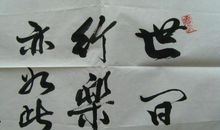 世间
行樂
亦如此